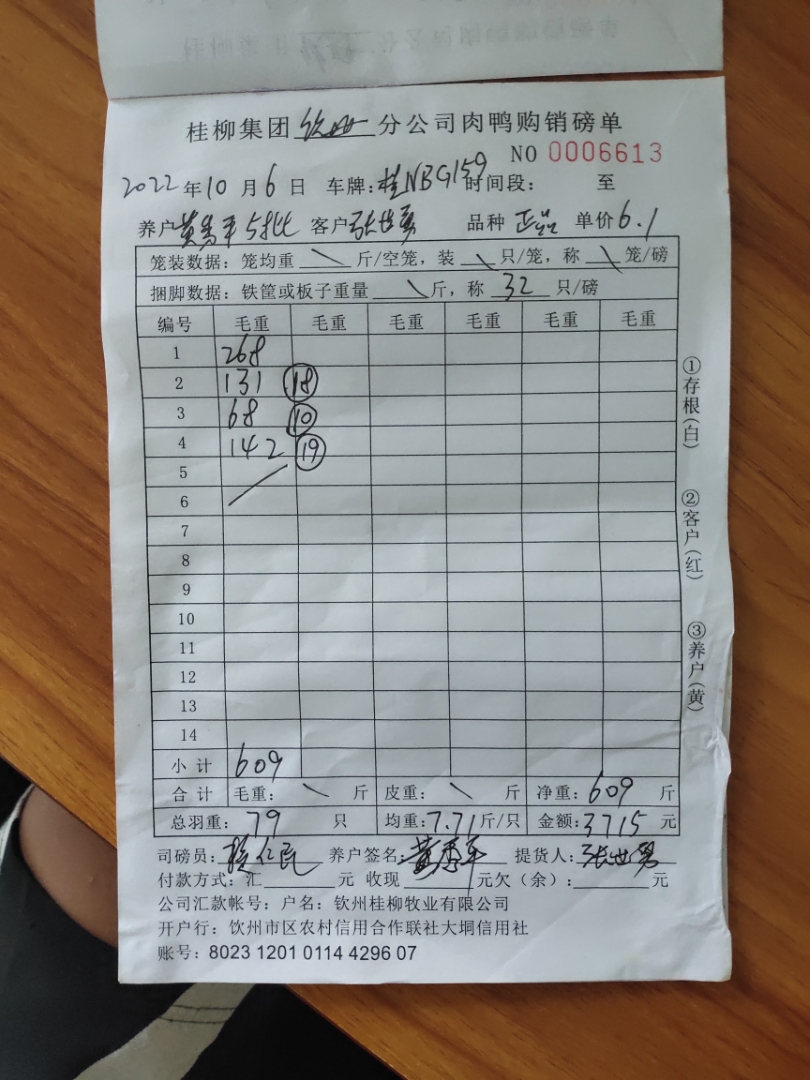 桂柳集团 钦州 分公司肉鸭购销磅单
NO 0006613
2022年10月6日 车牌:桂NBG159 时间段: 至
养户 黄秀平5批 客户 张世勇 品种 正品 单价 6.1
笼装数据: 笼均重 \ 斤/空笼, 装 \ 只/笼, 称 \ 笼/磅
捆脚数据: 铁筐或板子重量 \ 斤, 称 32 只/磅
编号 毛重 毛重 毛重 毛重 毛重 毛重
1 268
2 131 ⑱
3 68 ⑩
4 142 ⑲
5
6
7
8
9
10
11
12
13
14
小计 609
合计 毛重: \ 斤 皮重: \ 斤 净重: 609 斤
总羽重: 79 只 均重: 7.71 斤/只 金额: 3715 元
司磅员: 仁民 养户签名: 黄秀平 提货人: 张世勇
付款方式: 汇 元 收现 元欠(余): 元
公司汇款帐号: 户名: 钦州桂柳牧业有限公司
开户行: 饮州市区农村信用合作联社大垌信用社
账号: 8023 1201 0114 4296 07
①存根(白)
②客户(红)
③养户(黄)